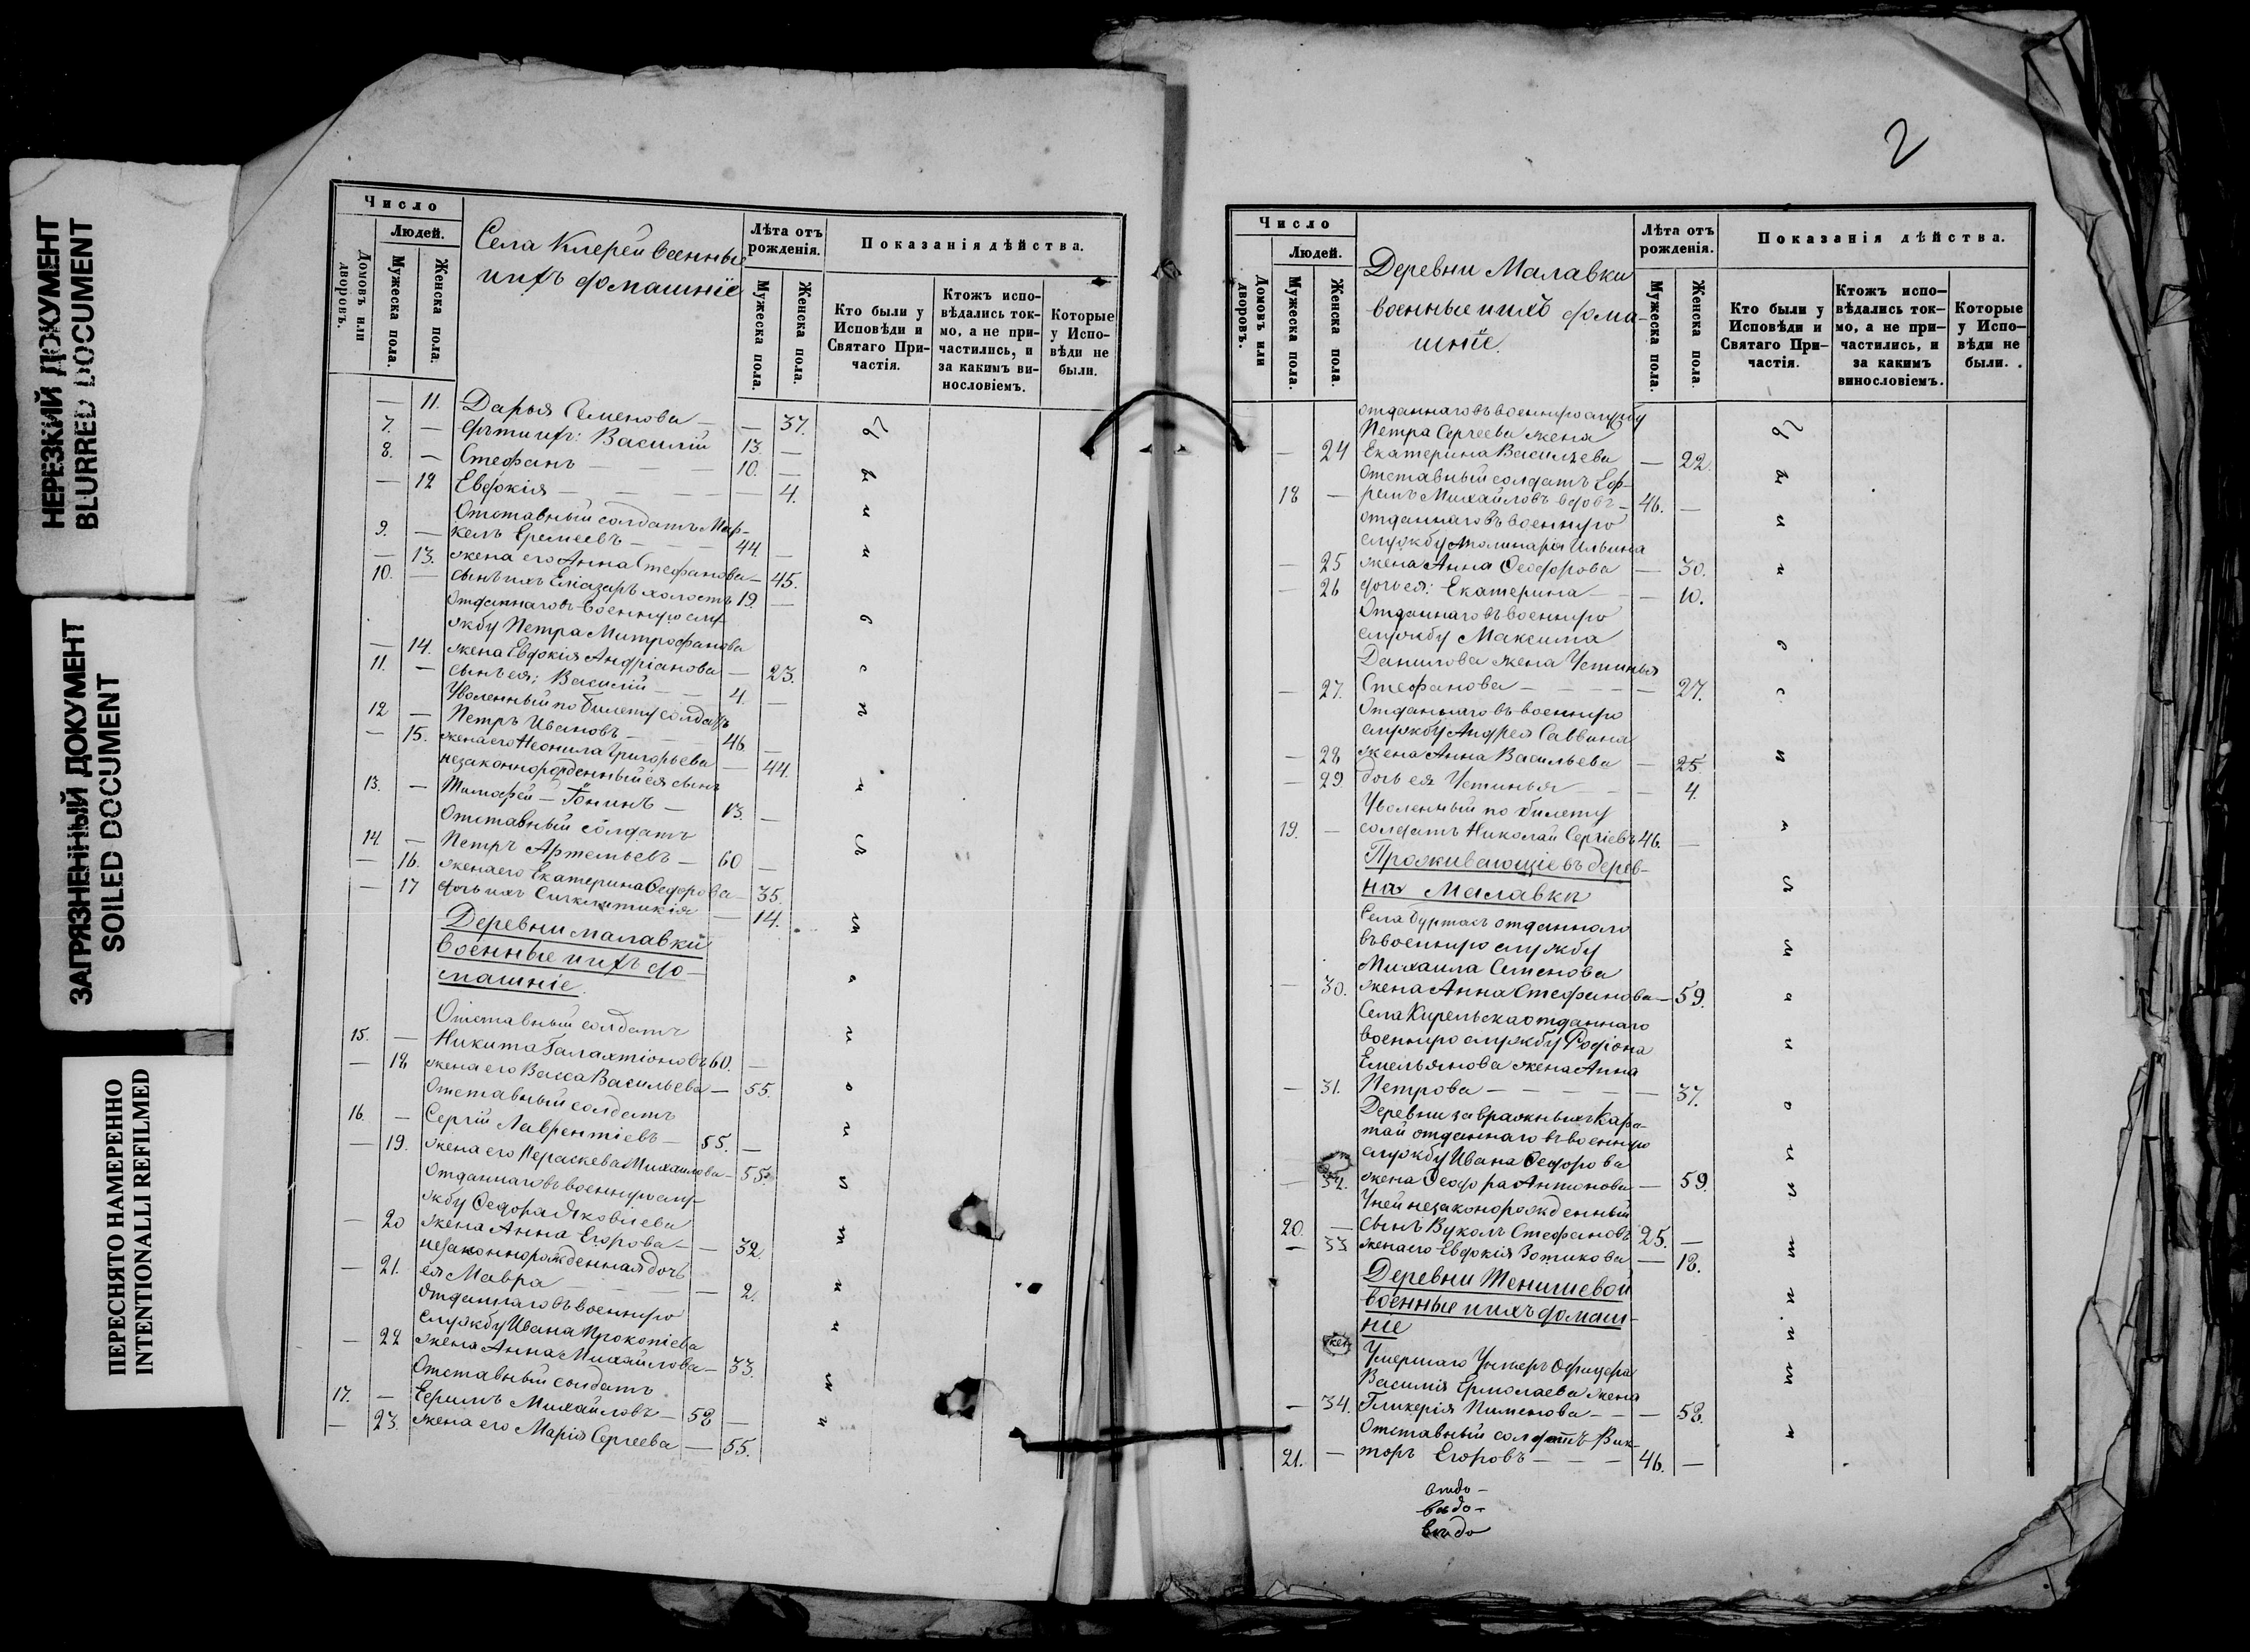 НЕРЕЗКИЙ ДОКУМЕНТ
BLURRED DOCUMENT
ЗАГРЯЗНЕННЫЙ ДОКУМЕНТ
SOILED DOCUMENT
ПЕРЕСНЯТО НАМЕРЕННО
INTENTIONALLI REFILMED
Число
Людей.
Домовъ или дворовъ.
Мужеска пола.
Женска пола.
Села Клерей военные
ихъ домашніе
Лѣта отъ рожденія.
Мужеска пола.
Женска пола.
Показанія дѣйства.
Кто были у Исповѣди и Святаго Причастія.
Ктожъ исповѣдались токмо, а не причастились, и за какимъ винословіемъ.
Которые у Исповѣди не были.
— 11. Дарья Семенова — — 37.
7. — дѣти ихъ: Василій 13. —
8. — Стефанъ — — — 10. —
— 12 Евдокія — — — — 4.
Отставный солдатъ Мар-
9. — келъ Еремеевъ — — — 44. —
— 13. жена его Анна Стефанова — 45.
10. — сынъ ихъ Еліазаръ холостъ 19. —
Отданнаго въ военную слу-
жбу Петра Митрофанова
— 14. жена Евдокія Андріанова — 23.
11. — сынъ ея: Василій — — 4. —
Уволенный по билету солдатъ
12 — Петръ Ивановъ — — — 46 —
— 15. жена его Неонила Григорьева — 44.
незаконнорожденный ея сынъ
13. — Тимофей — — 13. —
Отставный солдатъ
14. — Петръ Артемьевъ — 60 —
— 16. жена его Екатерина Ѳедорова — 35.
— 17 дочь ихъ Сигклитикія — 14.
Деревни Малавки
военные ихъ до-
машніе.
Отставный солдатъ
15. — Никита Галахтіоновъ 60. —
— 18 жена его Васса Васильева — 55.
Отставный солдатъ
16. — Сергій Лаврентіевъ — 55. —
— 19. жена его Пераскева Михаилова — 55.
Отданнаго въ военную слу-
жбу Ѳедора Яковлева
— 20 жена Анна Егорова — — 32.
незаконнорожденная дочь
— 21. ея Мавра — — — 2.
Отданнаго въ военную
службу Ивана Прокопіева
— 22 жена Анна Михайлова — 33.
Отставный солдатъ
17. — Ефимъ Михайловъ — 58 —
— 23. жена его Марія Сергеева — 55.
2
Число
Людей.
Домовъ или дворовъ.
Мужеска пола.
Женска пола.
Деревни Малавки
военные ихъ дома-
шніе.
Лѣта отъ рожденія.
Мужеска пола.
Женска пола.
Показанія дѣйства.
Кто были у Исповѣди и Святаго Причастія.
Ктожъ исповѣдались токмо, а не причастились, и за какимъ винословіемъ.
Которые у Исповѣди не были.
отданнаго въ военную службу
Петра Сергеева жена
— 24 Екатерина Васильева — 22.
Отставный солдатъ Еф-
18 — ремъ Михайловъ вдовъ — 46. —
отданнаго въ военную
службу Ильина
— 25 жена Анна Ѳеодорова — 30.
— 26 дочь ея: Екатерина — — 10.
Отданнаго въ военную
службу Максима
Данилова жена Устинья
— 27. Стефанова — — — — 27.
Отданнаго въ военную
службу Андрея Саввина
— 28 жена Анна Васильева — 25.
— 29. дочь ея Устинья — — 4.
Уволенный по билету
19. — солдатъ Николай Сергіевъ 46. —
Проживающіе въ дерев-
на Малавки
Села Буртасъ отданнаго
въ военную службу
Михаила Семенова
— 30. жена Анна Стефанова — 59.
Села Кирельска отданнаго
военную службу Родіона
Емельянова жена Анна
— 31. Петрова — — — — 37.
Деревни завражныхъ Кара-
тай отданнаго въ военную
службу Ивана Ѳедорова
— 32. жена Ѳеодора Антонова — 59.
У ней незаконорожденный
20. — сынъ Вуколъ Стефановъ 25. —
— 33 жена его Евдокія Зотикова — 18.
Деревни Тенишевой
военные ихъ домаш-
ніе
Умершаго Унтеръ Офицера
Василія Ермолаева жена
— 34. Гликерія Пименова — — — 58.
Отставный солдатъ Вик-
21. — торъ Егоровъ — — — 46. —